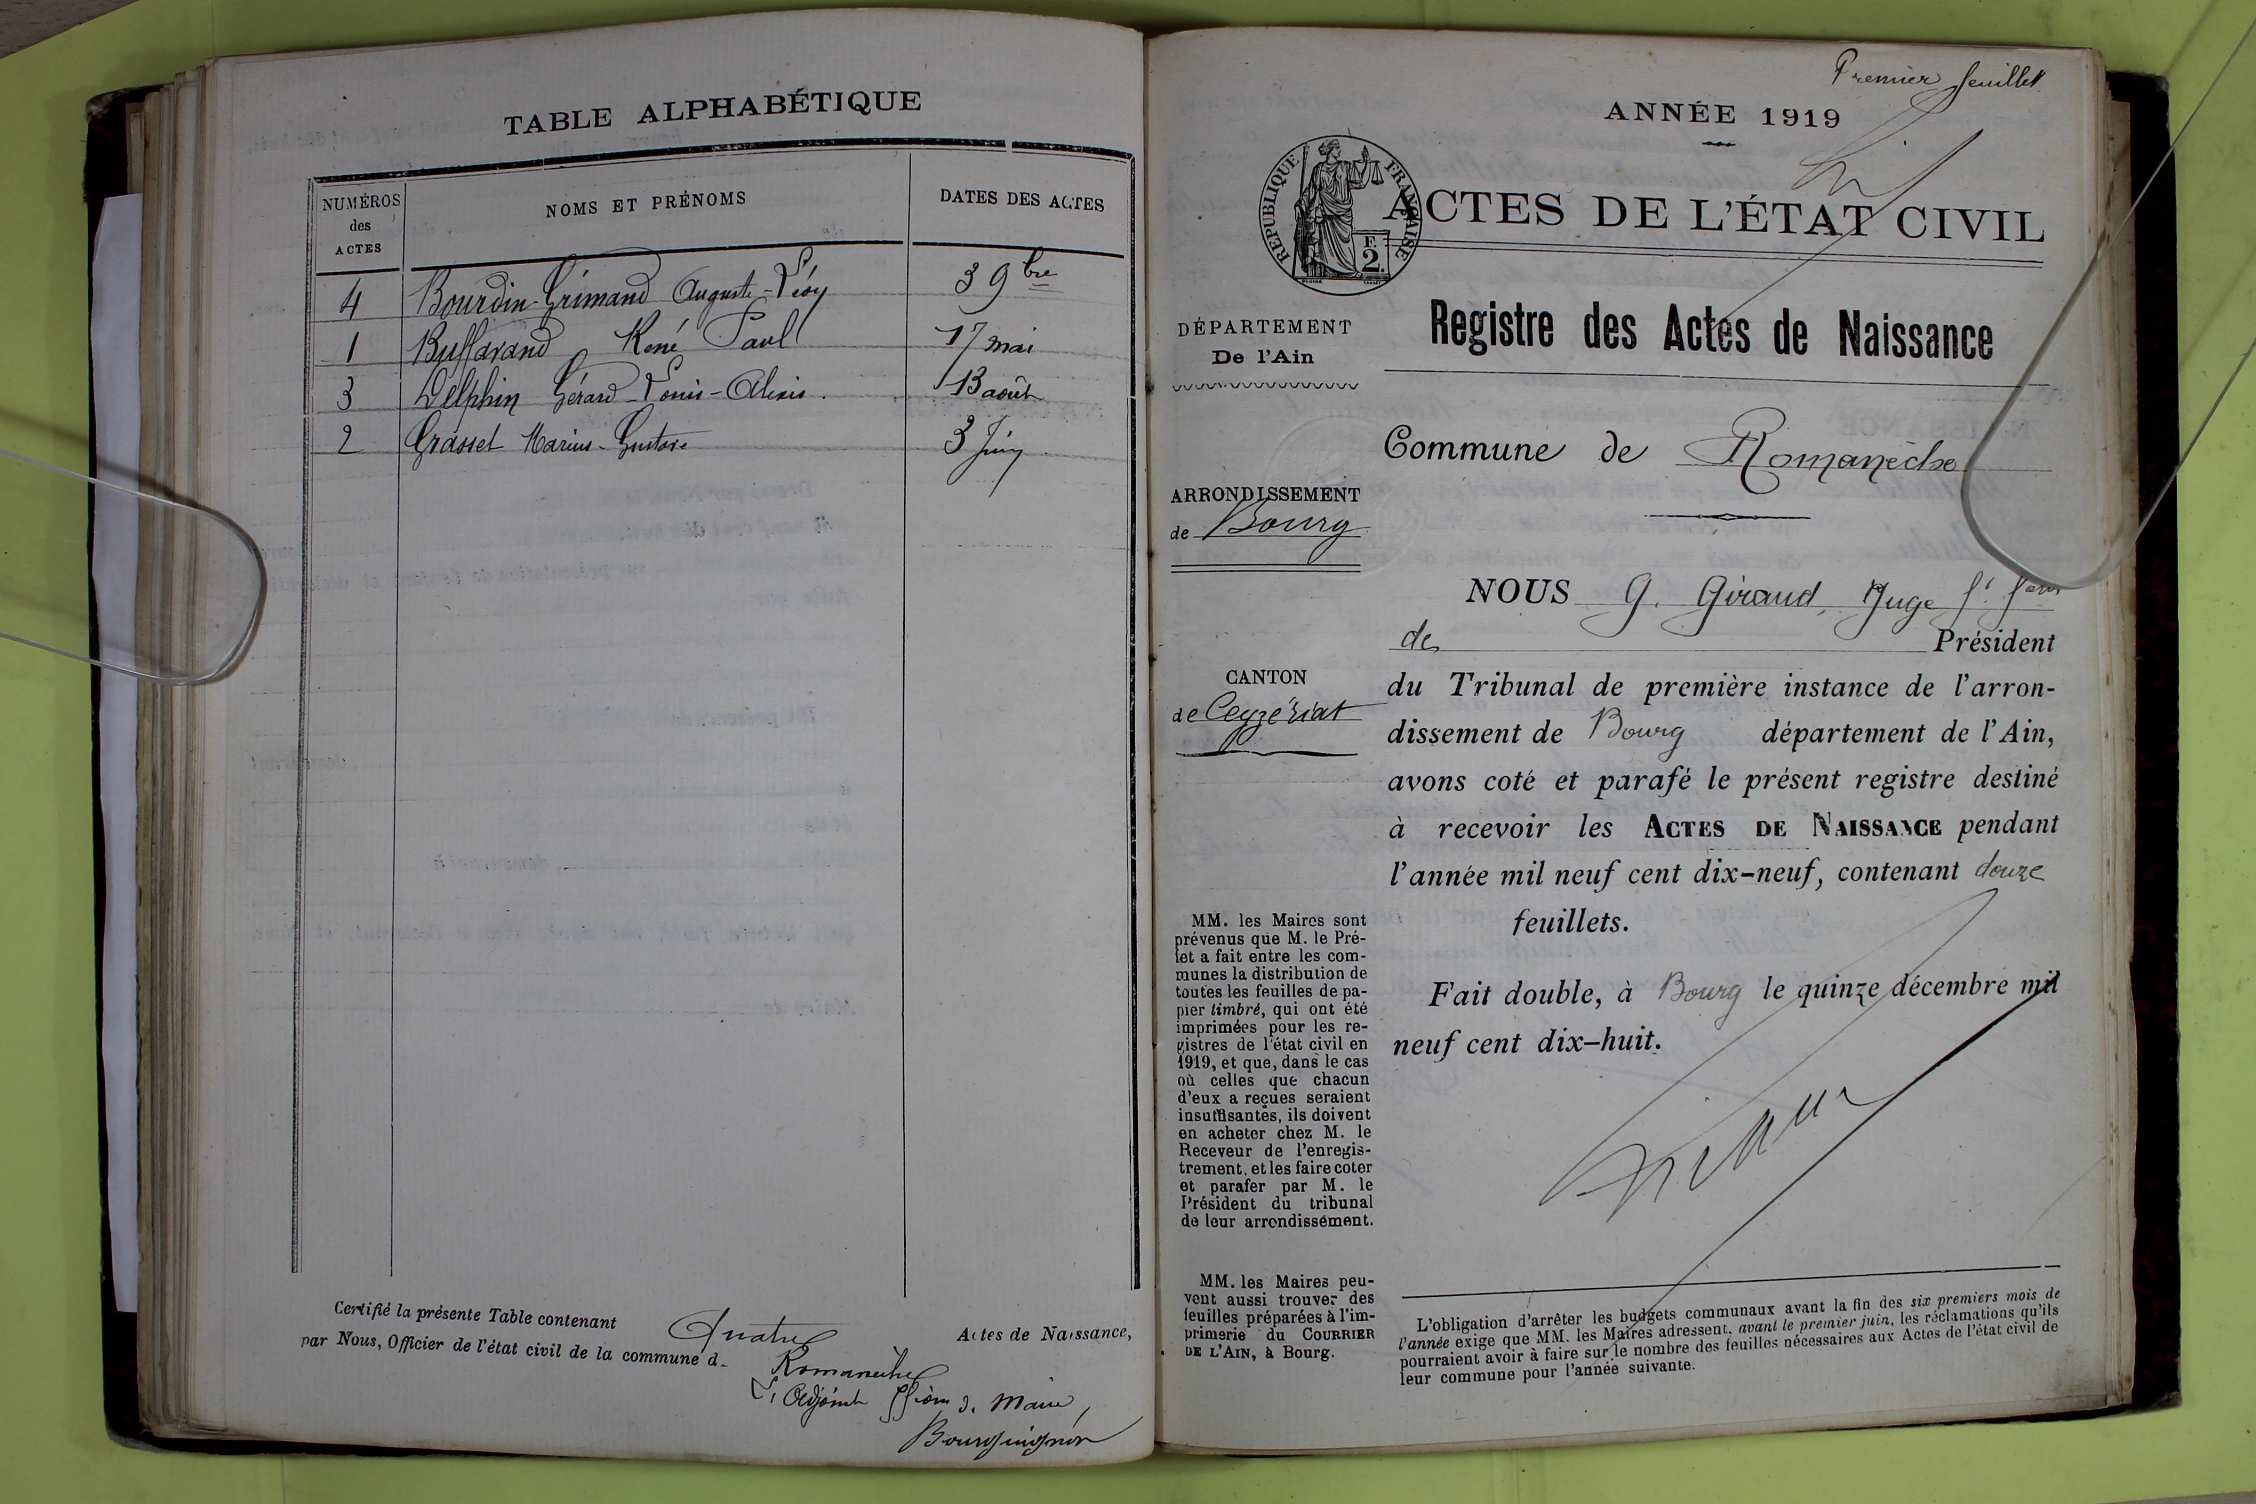 TABLE ALPHABÉTIQUE
NUMÉROS
des
ACTES
NOMS ET PRÉNOMS
DATES DES ACTES
4 Bourdin-Grimaud Auguste-Léon 3 9bre
1 Buffavand René Paul 17 mai
3 Delphin Gérard-Louis-Alexis. 13 août
2 Grasset Marius-Gustave 3 Juin
Certifié la présente Table contenant Quatre Actes de Naissance,
par Nous, Officier de l'état civil de la commune d- Romanèche
L'Adjoint ffions d. Maire,
Bourguignon
Premier feuillet
ANNÉE 1919
RÉPUBLIQUE FRANÇAISE
F.
2.
ACTES DE L'ÉTAT CIVIL
Registre des Actes de Naissance
DÉPARTEMENT
De l'Ain
Commune de Romanèche
ARRONDISSEMENT
de Bourg
CANTON
de Ceyzériat
NOUS G. Giraud, Juge ft fons
de Président
du Tribunal de première instance de l'arron-
dissement de Bourg département de l'Ain,
avons coté et parafé le présent registre destiné
à recevoir les ACTES DE NAISSANCE pendant
l'année mil neuf cent dix-neuf, contenant douze
feuillets.
Fait double, à Bourg le quinze décembre mil
neuf cent dix-huit.
MM. les Maires sont
prévenus que M. le Pré-
fet a fait entre les com-
munes la distribution de
toutes les feuilles de pa-
pier timbré, qui ont été
imprimées pour les re-
gistres de l'état civil en
1919, et que, dans le cas
où celles que chacun
d'eux a reçues seraient
insuffisantes, ils doivent
en acheter chez M. le
Receveur de l'enregis-
trement, et les faire coter
et parafer par M. le
Président du tribunal
de leur arrondissement.
MM. les Maires peu-
vent aussi trouver des
feuilles préparées à l'im-
primerie du COURRIER
DE L'AIN, à Bourg.
L'obligation d'arrêter les budgets communaux avant la fin des six premiers mois de
l'année exige que MM. les Maires adressent, avant le premier juin, les réclamations qu'ils
pourraient avoir à faire sur le nombre des feuilles nécessaires aux Actes de l'état civil de
leur commune pour l'année suivante.